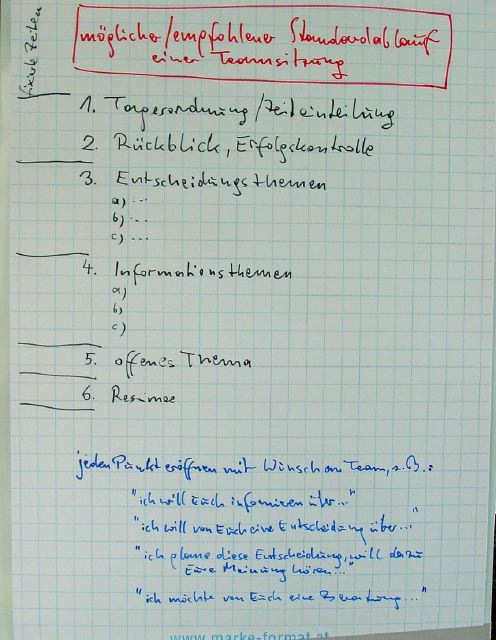 fixe Zeiten
möglicher/empfohlener Standardablauf
einer Teamsitzung
1. Tagesordnung/Zeiteinteilung
2. Rückblick, Erfolgskontrolle
3. Entscheidungsthemen
a) ...
b) ...
c) ...
4. Informationsthemen
a)
b)
c)
5. offenes Thema
6. Resümee
jeden Punkt eröffnen mit Wunsch an Team, z.B.:
"ich will Euch informieren über..."
"ich will von Euch eine Entscheidung über..."
"ich plane diese Entscheidung, will dazu
Eure Meinung hören..."
"ich möchte von Euch eine Beratung..."
www.marke-format.at